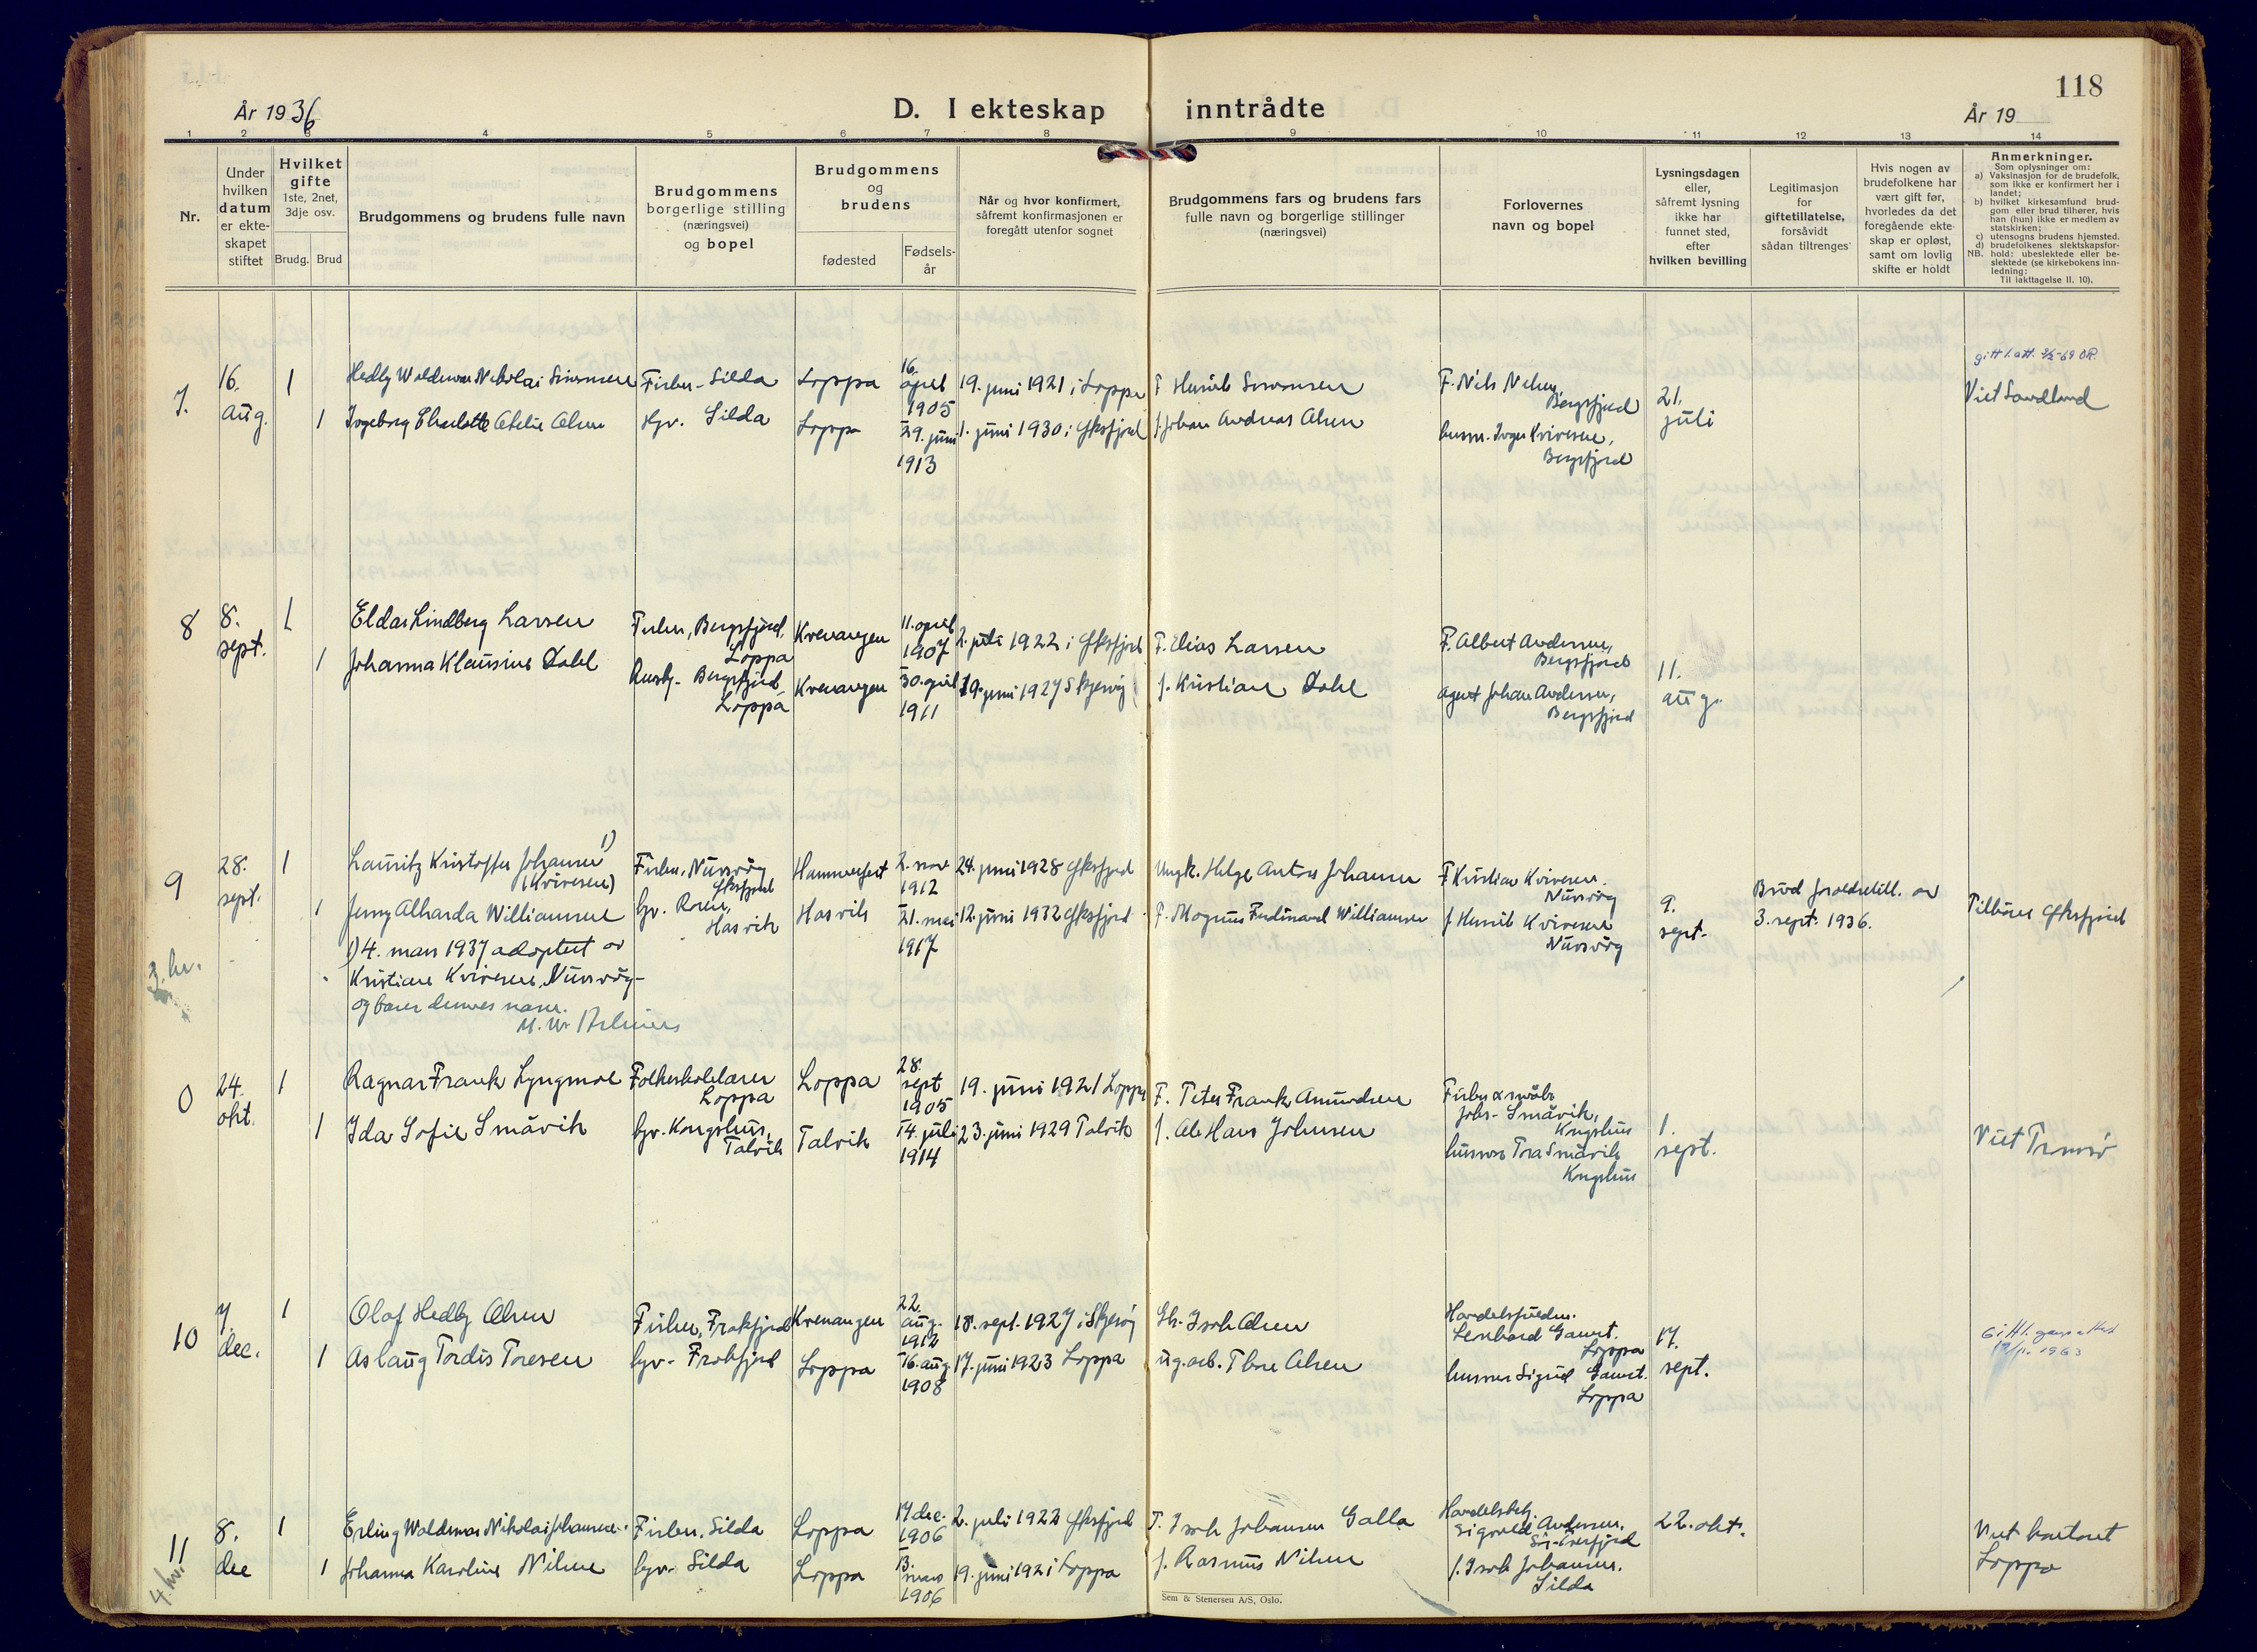 118
År 1936
D. I ekteskap inntrådte
År 19
1 2 3 4 5 6 7 8 9 10 11 12 13 14
Nr.
Under
hvilken
datum
er ekte-
skapet
stiftet
Hvilket
gifte
1ste, 2net,
3dje osv.
Brudg. Brud
Brudgommens og brudens fulle navn
Brudgommens
borgerlige stilling
(næringsvei)
og bopel
Brudgommens
og
brudens
fødested
Fødsels-
år
Når og hvor konfirmert,
såfremt konfirmasjonen er
foregått utenfor sognet
Brudgommens fars og brudens fars
fulle navn og borgerlige stillinger
(næringsvei)
Forlovernes
navn og bopel
Lysningsdagen
eller,
såfremt lysning
ikke har
funnet sted,
efter
hvilken bevilling
Legitimasjon
for
giftetillatelse,
forsåvidt
sådan tiltrenges
Hvis nogen av
brudefolkene har
vært gift før,
hvorledes da det
foregående ekte-
skap er opløst,
samt om lovlig
skifte er holdt
Anmerkninger.
Som oplysninger om:
a) Vaksinasjon for de brudefolk,
som ikke er konfirmert her i
landet;
b) hvilket kirkesamfund brud-
gom eller brud tilhører, hvis
han (hun) ikke er medlem av
statskirken;
c) utensogns brudens hjemsted.
d) brudefolkenes slektskapsfor-
hold: ubeslektede eller be-
slektede (se kirkebokens inn-
NB. ledning:
Til iakttagelse II. 10).
7.
16.
aug.
1
1
Hedly Waldemar Nikolai Simonsen
Ingeborg Charlotte Olsen
Fisker - Silda
Hjv. Silda
Loppa
Loppa
16.
april
1905
29. juni
1913
19. juni 1921 i Loppa
1. juni 1930 i Øksfjord
F. Henrik Simonsen
f. Johan Andreas Olsen
F. Nils Nilsen
Bergsfjord
Kvivesen,
Bergsfjord
21.
juli
Viet Sandland
8
8.
sept.
1
1
Eldar Lindberg Larsen
Johanna Klausine Dahl
Fisker, Bergsfjord,
Loppa
Bergsfjord
Loppa
Kvenangen
Kvenangen
11. april
1907
30. april
1911
2. juli 1922 i Øksfjord
19. juni 1927 Skjervøy
F. Elias Larsen
f. Kristian Dahl
F. Albert Andersen,
Bergsfjord
agent Johan Andersen,
Bergsfjord
11.
aug.
9
28.
sept.
1
1
Lauritz Kristoffer Johansen 1)
(Kvivesen)
Jenny Alharda Williamsen
1) 4. mars 1937 adoptert av
Kristian Kvivesen, Nuvsvåg -
og bærer dennes navn.
Fisker, Nuvsvåg
Øksfjord
hjv.
Hasvik
Hammerfest
Hasvik
2. nov.
1912
21. mai
1917
24. juni 1928 Øksfjord
12. juni 1932 Øksfjord
Ungk. Helge Anton Johansen
F. Magnus Ferdinand Williamsen
F. Kristian Kvivesen
Nuvsvåg
f. Henrik Kvivesen
Nuvsvåg
9.
sept.
Brud foreldretill. av
3. sept. 1936.
Tilhører Øksfjord
3. kv.
0
24.
okt.
1
1
Ragnar Frank Lyngmoe
Ida Sofie Småvik
Folkeskolelærer
Loppa
hjv. Kongshus,
Talvik
Loppa
Talvik
28.
sept
1905
14. juli
1914
19. juni 1921 Loppa
23. juni 1929 Talvik
F. Peter Frank Amundsen
f. Ole Hans Johnsen
Fisker & småbr.
Johs. Småvik,
Kongshus
husmor Tora Småvik
Kongshus
1.
sept.
Viet Tromsø
10
7.
dec.
1
1
Olaf Hedly Olsen
Aslaug Tordis Toresen
Fisker, Frakfjord
hjv. Frakfjord
Kvenangen
Loppa
22.
aug.
1912
16. aug.
1908
18. sept. 1927 i Skjervøy
17. juni 1923 Loppa
Isak Olsen
ug. arb. Thore Olsen
Handelsfullm.
Lenhard Gamst.
Loppa
husmor Sigrid Gamst.
Loppa
17.
sept.
1963
11
8.
dec
1
1
Erling Waldemar Nikolai Johansen
Johanna Karoline Nilsen
Fisker. Silda
hjv. Silda
Loppa
Loppa
17 dec.
1906
13.
mars
1906
2. juli 1922 Øksfjord
19. juni 1921 Loppa
F. Isak Johansen Galla
f. Rasmus Nilsen
Handelsbetj.
Sigvald Andersen.
f. Isak Johansen.
Silda
22. okt.
Viet
Loppa
4. kv.
Sem & Stenersen A/S, Oslo.